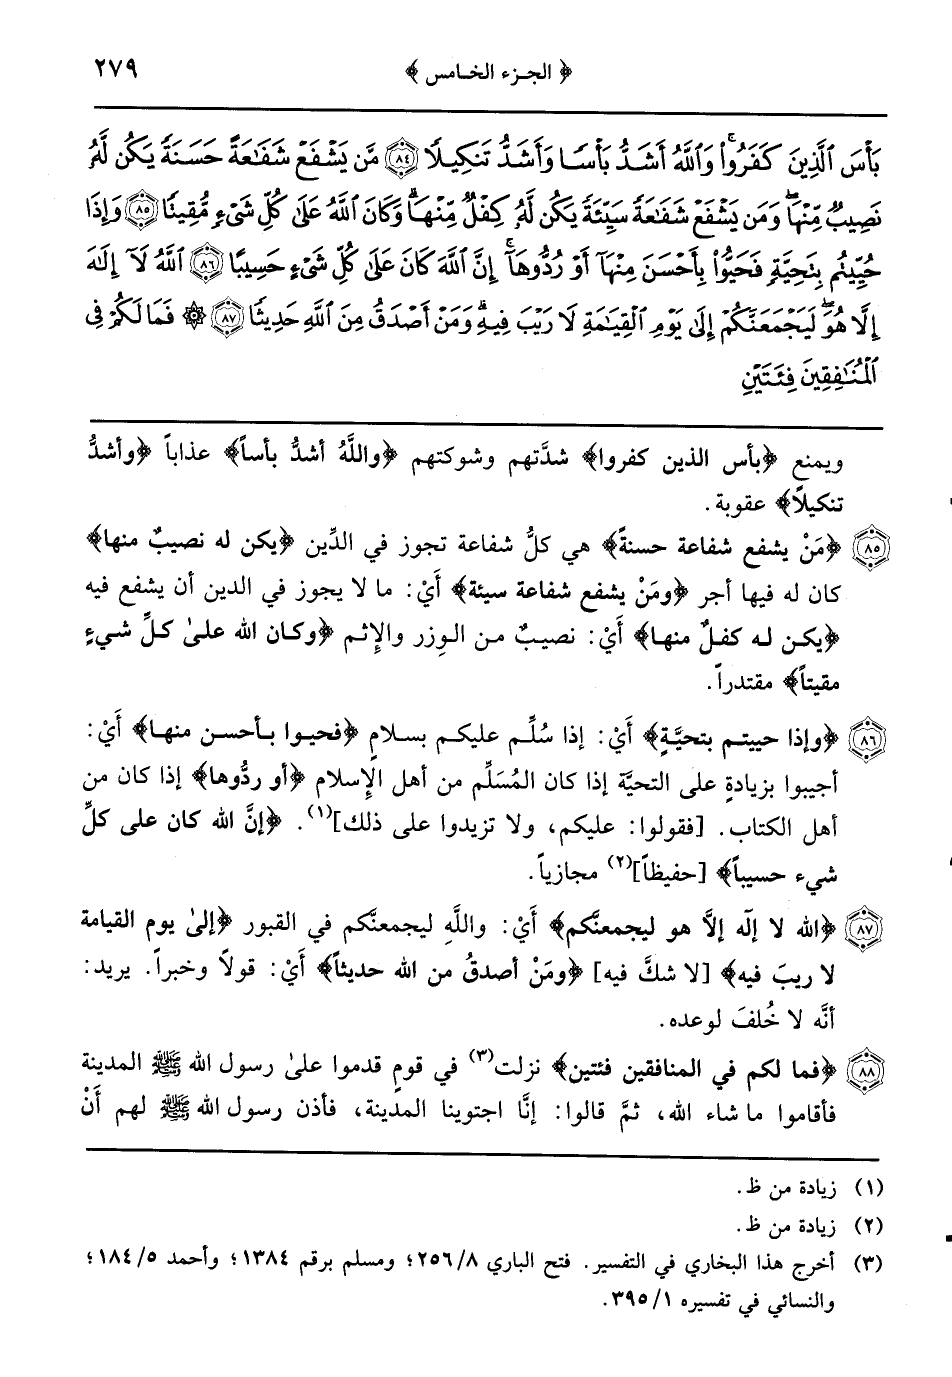 ﴿ الجـزء الخـامس ﴾ ٢٧٩
بَأْسَ ٱلَّذِينَ كَفَرُوا۟ۚ وَٱللَّهُ أَشَدُّ بَأْسًا وَأَشَدُّ تَنكِيلًا ﴿٨٤﴾ مَّن يَشْفَعْ شَفَـٰعَةً حَسَنَةً يَكُن لَّهُۥ
نَصِيبٌ مِّنْهَاۖ وَمَن يَشْفَعْ شَفَـٰعَةً سَيِّئَةً يَكُن لَّهُۥ كِفْلٌ مِّنْهَاۗ وَكَانَ ٱللَّهُ عَلَىٰ كُلِّ شَىْءٍ مُّقِيتًا ﴿٨٥﴾ وَإِذَا
حُيِّيتُم بِتَحِيَّةٍ فَحَيُّوا۟ بِأَحْسَنَ مِنْهَآ أَوْ رُدُّوهَآۗ إِنَّ ٱللَّهَ كَانَ عَلَىٰ كُلِّ شَىْءٍ حَسِيبًا ﴿٨٦﴾ ٱللَّهُ لَآ إِلَـٰهَ
إِلَّا هُوَۖ لَيَجْمَعَنَّكُمْ إِلَىٰ يَوْمِ ٱلْقِيَـٰمَةِ لَا رَيْبَ فِيهِۗ وَمَنْ أَصْدَقُ مِنَ ٱللَّهِ حَدِيثًا ﴿٨٧﴾ ۞ فَمَا لَكُمْ فِى
ٱلْمُنَـٰفِقِينَ فِئَتَيْنِ
ويمنع ﴿بأس الذين كفروا﴾ شدَّتهم وشوكتهم ﴿واللَّهُ أشدُّ بأساً﴾ عذاباً ﴿وأشدُّ
تنكيلاً﴾ عقوبة.
٨٥ ﴿مَنْ يشفع شفاعة حسنةً﴾ هي كلُّ شفاعة تجوز في الدِّين ﴿يكن له نصيبٌ منها﴾
كان له فيها أجر ﴿ومَنْ يشفع شفاعة سيئة﴾ أَيْ: ما لا يجوز في الدين أن يشفع فيه
﴿يكـن لـه كفـلٌ منهـا﴾ أَيْ: نصيـبٌ مـن الـوزر والإثـم ﴿وكـان الله علىٰ كـلِّ شيءٍ
مقيتاً﴾ مقتدراً.
٨٦ ﴿وإذا حييتـم بتحيَّـةٍ﴾ أَيْ: إذا سُلِّـم عليكـم بسـلامٍ ﴿فحيـوا بـأحسـن منهـا﴾ أَيْ:
أجيبوا بزيادةٍ على التحيَّة إذا كان المُسَلِّم من أهل الإسلام ﴿أو ردُّوها﴾ إذا كان من
أهل الكتاب. [فقولوا: عليكم، ولا تزيدوا على ذلك](١). ﴿إنَّ الله كان على كلِّ
شيء حسيباً﴾ [حفيظاً](٢) مجازياً.
٨٧ ﴿الله لا إلٰه إلاَّ هو ليجمعنَّكم﴾ أَيْ: واللَّهِ ليجمعنَّكم في القبور ﴿إلىٰ يوم القيامة
لا ريبَ فيه﴾ [لا شكَّ فيه] ﴿ومَنْ أصدقُ من الله حديثاً﴾ أَيْ: قولاً وخبراً. يريد:
أنَّه لا خُلفَ لوعده.
٨٨ ﴿فما لكم في المنافقين فئتين﴾ نزلت(٣) في قومٍ قدموا علىٰ رسول الله ﷺ المدينة
فأقاموا ما شاء الله، ثمَّ قالوا: إنَّا اجتوينا المدينة، فأذن رسول الله ﷺ لهم أَنْ
(١) زيادة من ظ.
(٢) زيادة من ظ.
(٣) أخرج هذا البخاري في التفسير. فتح الباري ٢٥٦/٨؛ ومسلم برقم ١٣٨٤؛ وأحمد ١٨٤/٥؛
والنسائي في تفسيره ٣٩٥/١.